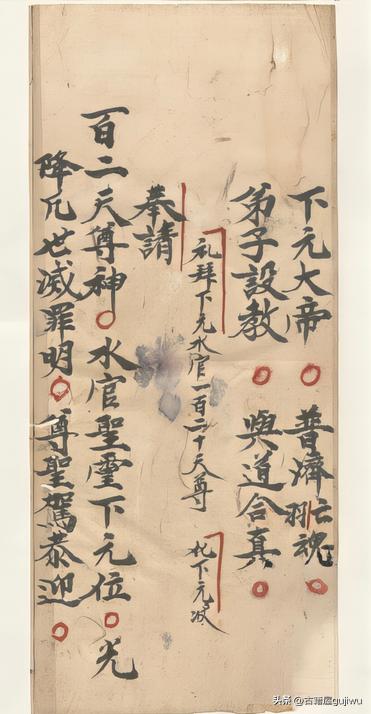 下元大帝 普濟亡魂
弟子設教 與道合真
礼拜下元水官一百二十天尊 礼下元
奉請
百二天尊神 水官聖霊下元位 光
降凡世滅罪明 尊聖駕恭迎
头条 @古籍屋gujiwu